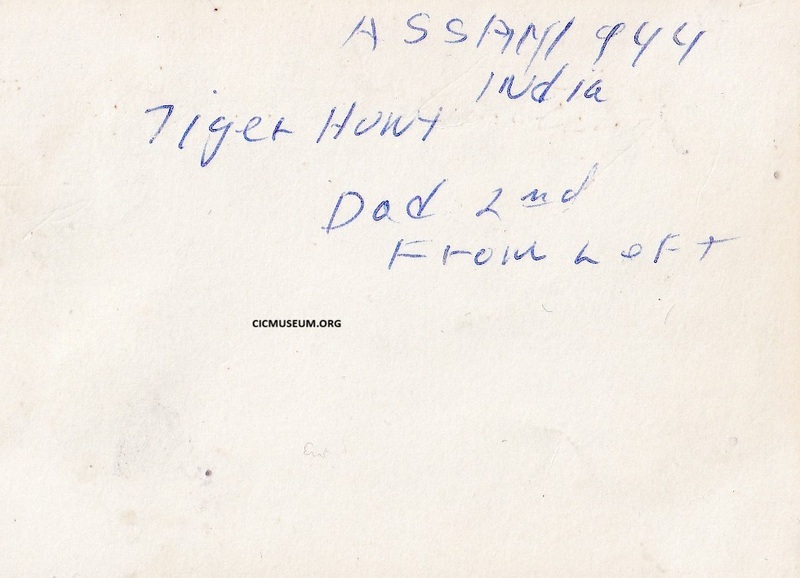 ASSAM 1944
INdia
Tiger HuNt
Dad 2nd
From LeFt
CICMUSEUM.ORG